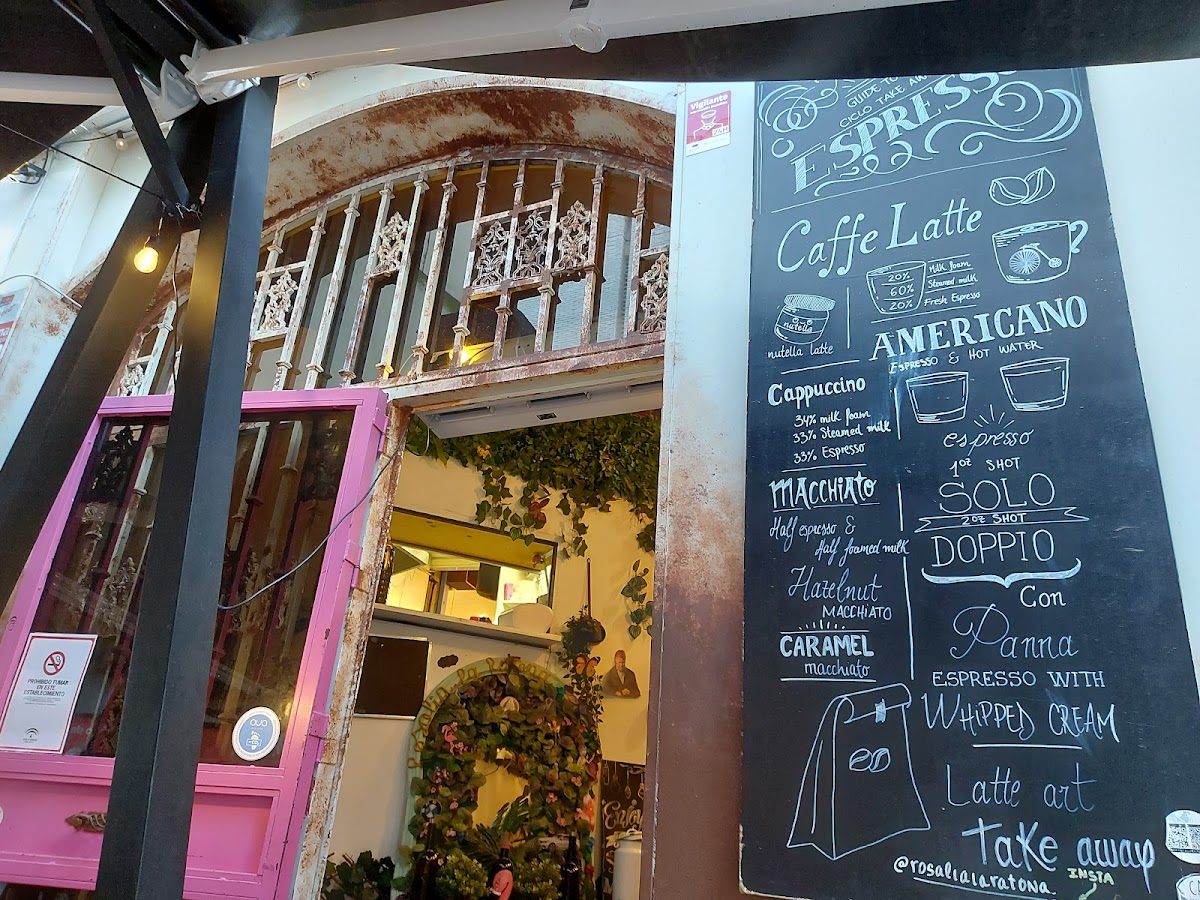 GUIDE TO
CICLO TAKE AW
ESPRESS
Caffe Latte
20% Milk foam
60% Steamed milk
20% Fresh Espresso
nutella
nutella latte
AMERICANO
ESPRESSO & HOT WATER
Cappuccino
34% milk foam
33% Steamed milk
33% Espresso
espresso
1oz SHOT
SOLO
2oz SHOT
DOPPIO
Con
Panna
ESPRESSO WITH
WHIPPED CREAM
MACCHIATO
Half espresso &
Half foamed milk
Hazelnut
MACCHIATO
CARAMEL
macchiato
Latte art
Take away
INSTA
@rosalialaratona
Vigilante
24H
PROHIBIDO FUMAR
EN ESTE
ESTABLECIMIENTO